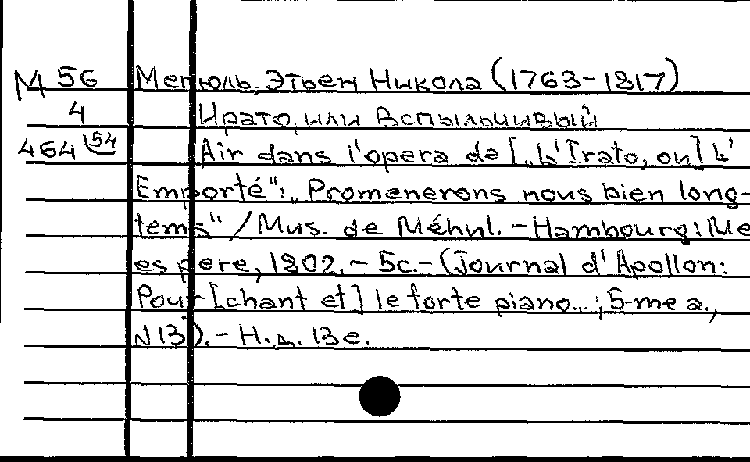 М 56 Мегюль, Этьен Никола (1763-1817)
4 Ирато, или Вспыльчивый
464 54 Air dans l'opera de [„L'Irato, ou] L'
Emporté": „Promenerons nous bien long-
tems" / Mus. de Méhul. - Hambourg: Me
es pere, 1802. - 5c. - (Journal d'Apollon:
Pour [chant et] le forte piano...; 5-me a.,
N 13). - Н.д. 13 e.